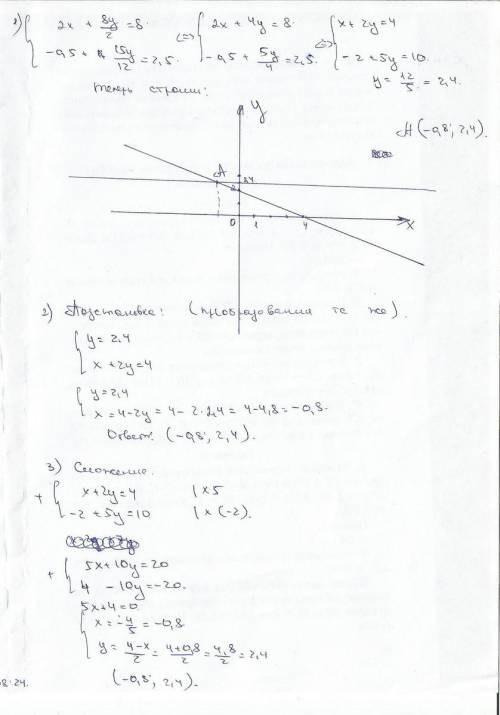 1) { 2x + 8y/2 = 8 <=> { 2x + 4y = 8 <=> { x + 2y = 4
-0,5 + 15y/12 = 2,5. -0,5 + 5y/4 = 2,5. -2 + 5y = 10.
y = 12/5 = 2,4.
Теперь строим:
A (-0,8; 2,4).
y
A 2,4
2
0 1 4 x
2) Подстановка: (преобразования те же).
{ y = 2,4
x + 2y = 4
{ y = 2,4
x = 4 - 2y = 4 - 2·2,4 = 4 - 4,8 = -0,8.
Ответ: (-0,8; 2,4).
3) Сложение.
+ { x + 2y = 4 | x5
-2 + 5y = 10 | x (-2).
+ { 5x + 10y = 20
4 - 10y = -20.
5x + 4 = 0
{ x = -4/5 = -0,8
y = 4-x/2 = 4+0,8/2 = 4,8/2 = 2,4
(-0,8; 2,4).
8:24.